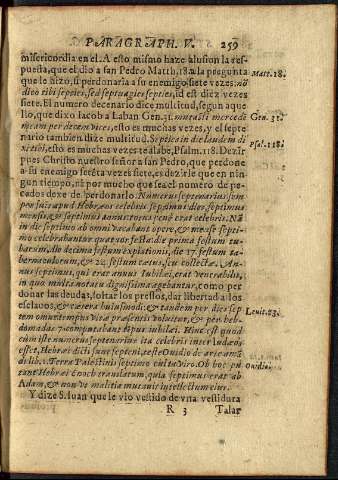 PARAGRAPH. V. 259
misericordia en el. A esto mismo haze alusion la res-
puesta, que el dio a san Pedro Matth. 18. a la pregunta
que le hizo, si perdonaria a su enemigo siete vezes; nõ
dico tibi septies, sed septuagies septies, id est diez vezes
siete. El numero decenario dice multitud, segun aque
llo, que dixo Iacob a Laban Gen. 31. mutasti mercedē
meam per decem vices, esto es muchas vezes, y el septe
nario tambien dize multitud. Septies in die laudem di
xi tibi, esto es muchas vezes te alabè, Psalm. 118. Dezir
pues Christo nuestro señor a san Pedro, que perdone
a su enemigo setēta vezes siete, es dezirle que en nin
gun tiempo, ni por mucho que sea el numero de pe-
cados dexe de perdonarlo. Numerus septenarius sem
per fuit apud Hebræos celebris septimus dies, septimus
mensis, & septimus annus terræ penè erat celebris. Nā
in die septimo ab omni vacabant opere, & mense septi-
mo celebrabantur quatuor festa die prima festum tu-
barum, die decima festum expiationis, die 17. festum ta-
bernaculorum, & 22. festum cætus, seu collectæ. An-
nus septimus, qui erat annus Iubilæi, erat venerabilis,
in quo multa notatu dignissima agebantur, como per
donar las deudas, soltar los pressos, dar libertad a los
esclavos, & cætera huiusmodi: & tandem per dies sep
tem omne tempus vitæ præsentis volvitur, & per heb-
domadas 7. computabant tēpus iubilæi. Hinc est quod
cum iste numerus septenarius ita celebris inter Iudæos
esset, Hebræi dicti sunt septeni, teste Ovidio de arte amā
di lib. 1. Terra Palestinis septimo culta viro. Ob hoc pu
tant Hebræi Enoch translatum, quia septimus erat ab
Adam, & non ve malitia mutaret intellectum eius.
Y dize S. Iuan que le vio vestido de vna vestidura
R 3 Talar
Matt. 18.
Gen. 31.
Psal. 118.
Levit. 23.
Ovidio.